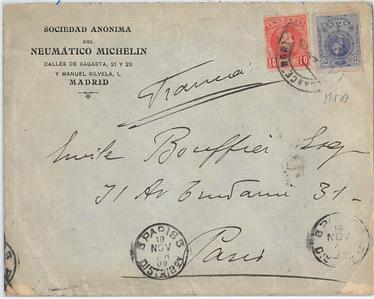 SOCIEDAD ANÓNIMA
DEL
NEUMÁTICO MICHELIN
CALLES DE SAGASTA, 21 Y 23
Y MANUEL SILVELA, 1,
MADRID
10 10
Francia
Emile Bouffier Esq
71 Av 31
Paris
PARIS
19
NOV
09
DISTRIB
PARIS
19
NOV
DISTRIB